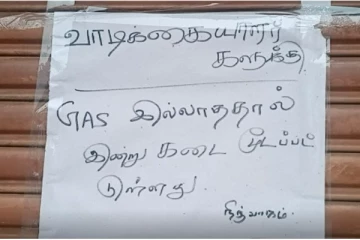 வாடிக்கையாளர்
களுக்கு
GAS இல்லாததால்
இன்று கடை மூடப்பட்
டுள்ளது.
நிர்வாகம்.